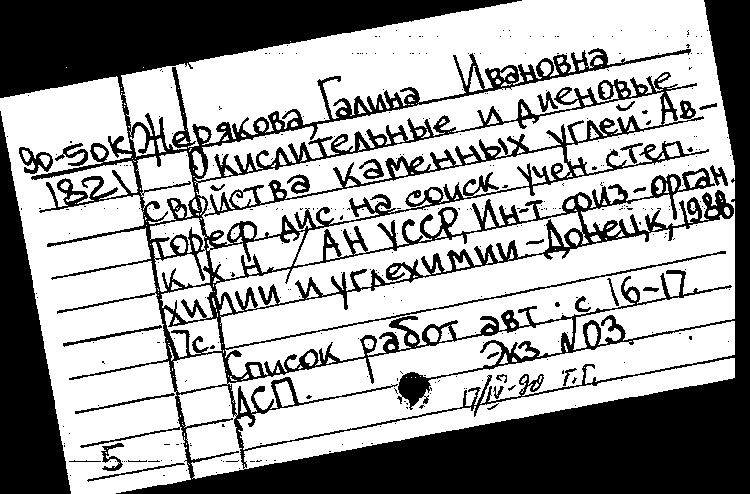 90-50к Жерякова, Галина Ивановна.
1821 Окислительные и диеновые
свойства каменных углей: Ав-
тореф. дис. на соиск. учен. степ.
к. х. н. / АН УССР, Ин-т физ-орган.
химии и углехимии.-Донецк, 1988-
17с.
Список работ авт.: с. 16-17.
ДСП. Экз. N03.
17/IV-90 Т.Г.
5